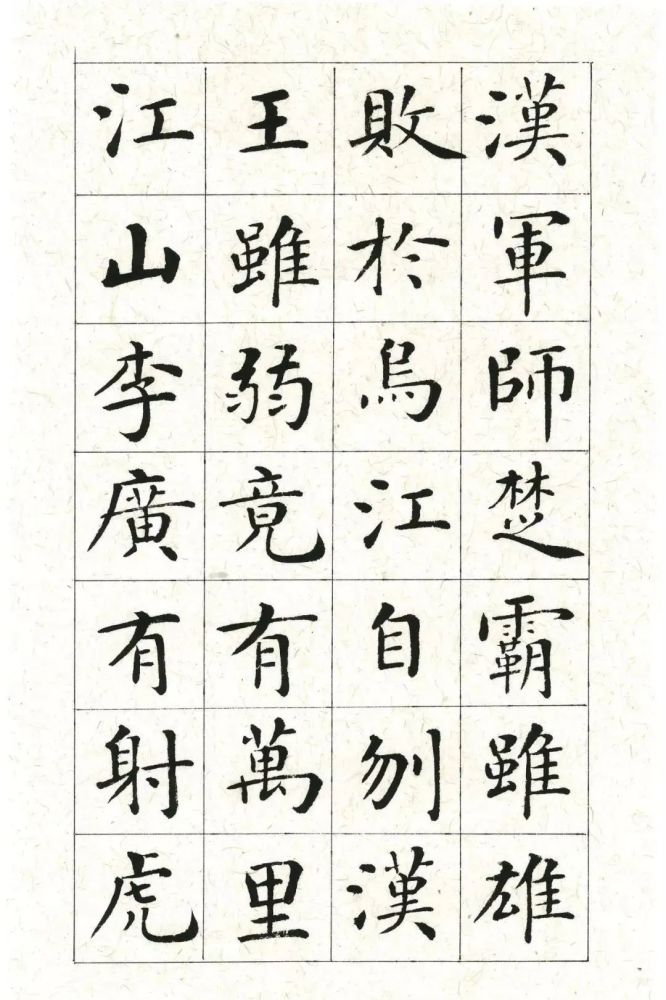 漢軍師楚霸雖雄
敗於烏江自刎漢
王雖弱竟有萬里
江山李廣有射虎